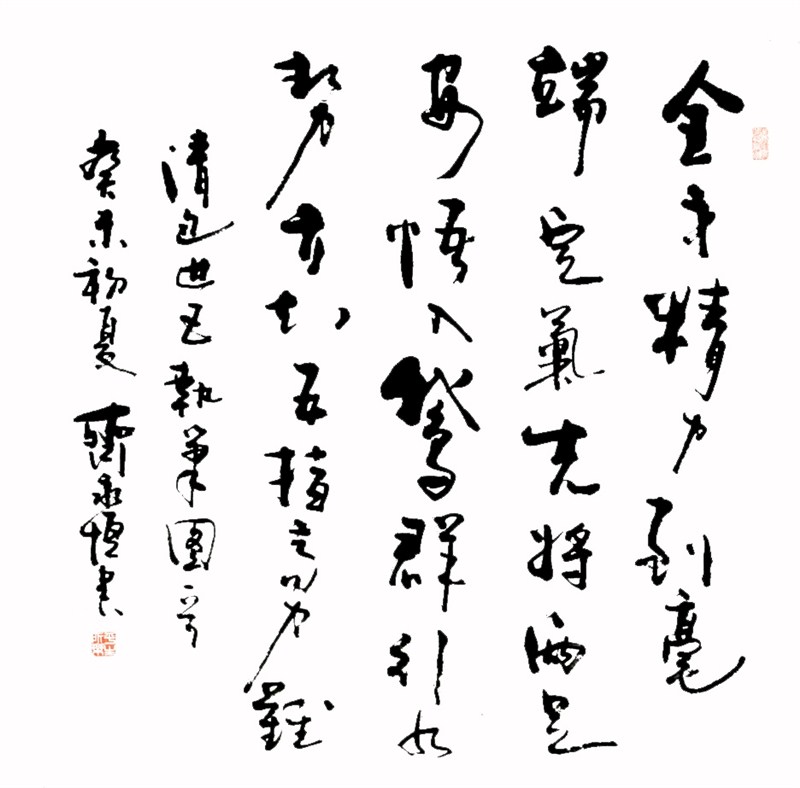 全身精力到毫
端定氣先將兩足
安悟入鵞群行水
勢方知五指齊力難
清包世臣執筆圖
癸未初夏 齊永恆書